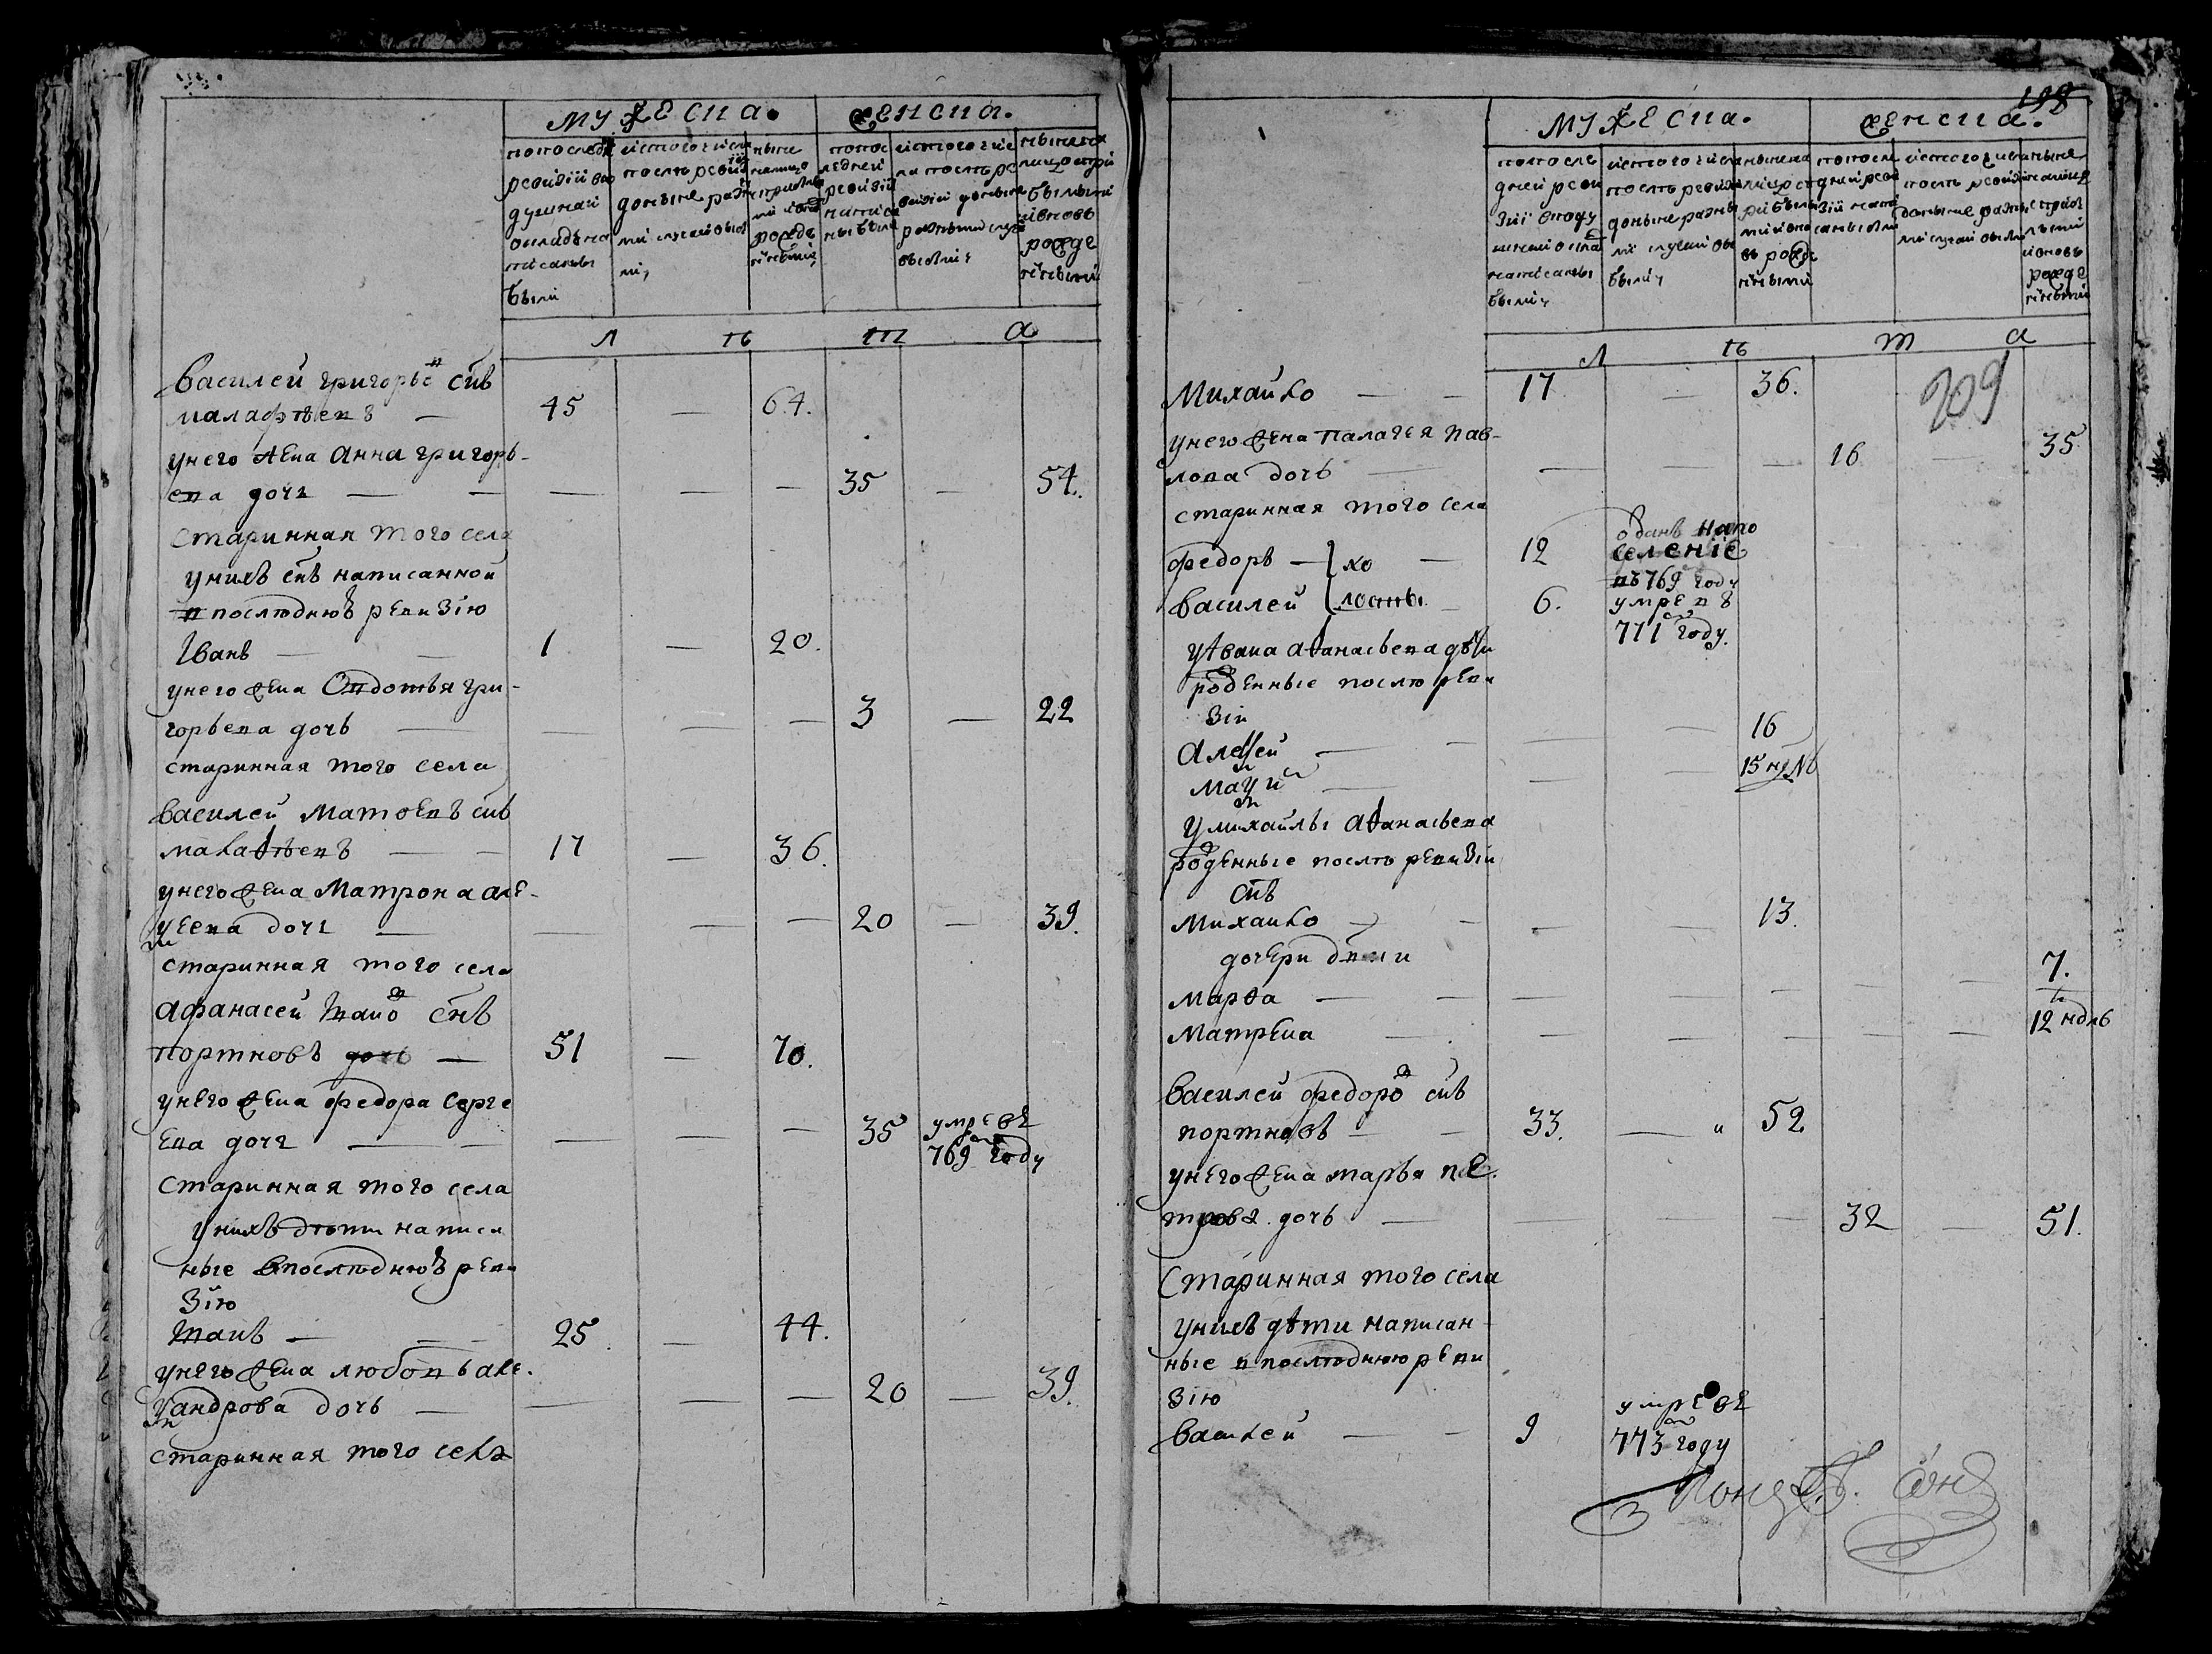 мужеска.
женска.
по последней
ревизии въ
душевной
окладъ на
писаны
были
ис того числа
после ревизии
доныне разны
ми случаи выбы
ли,
ныне
налицо
с прибылы
ми и вновь
рожде
нными,
по пос
ледней
ревизии
написа
ны были
ис того чис
ла после ре
визии доныне
разными случаи
выбыли,
ныне на
лицо с при
былыми
и вновь
рожде
нными
л ѣ т а
василей григорьевъ снъ
малафѣевъ — 45 — 64.
унего жена анна григорь-
ева дочь — — — — — 35 — 54.
старинная того села
унихъ снъ написанной
в послѣднюю ревизiю
Иванъ — — 1 — 20.
унего жена Овдотья гри-
горьева дочь — — — — 3 — 22
старинная того села
василей матвевъ снъ
малаѳѣевъ — — 17 — 36.
унего жена матрона але-
ксеева дочь — — — — 20 — 39.
старинная того села
афанасей Ивановъ снъ
портновъ дочь — 51 — 70.
унего жена федора серге
ева дочь — — — — — 35 умре въ
769м году
старинная того села
унихъ дѣти написа
ные в послѣднюю реви
зiю
Иванъ — — 25. — 44.
унего жена любовь але.
ксандрова дочь — — — — 20 — 39.
старинная того села
198
мужеска.
женска.
по послѣ
дней реви
зiи в поду
шной окла
написаны
были,
ис того числа
послѣ ревизи
доныне разны
ми случаи вы
были,
ныне на
лицо с п
рибылы
ми и вно
въ рожде
нными
по после
дней реви
зiи напи
саны были
ис того числа
послѣ ревизи
доныне разны
ми случаи выбыли
ныне
налицо
с прибы
лыми
и вновь
рожде
нными
л ѣ т а
209
михайло — — 17 — 36.
унего жена палагея пав-
лова дочь — — — — 16 — 35
старинная того села
федоръ — } хо — 12 отданъ напо
селение
въ 769м году
василей } лосты — 6. умре въ
771м году.
у ивана аѳанасьева дѣти
рожденные послѣ реви
зiи
алексей — — — — 16
максимъ — — — 15 ндль
у михайлы аѳанасьева
рожденные послѣ ревизiи
снъ
михайло — — — — 13.
дочери двѣ
марѳа — — — — — — — 7.
матрена — — — — — — 12 ндль
василей федоровъ снъ
портновъ — — 33. — 52.
унего жена марья пе.
трова дочь — — — — 32 — 51.
старинная того села
унихъ дѣти написан-
ные в послѣднюю реви
зiю
василей — — 9 умре въ
773м году